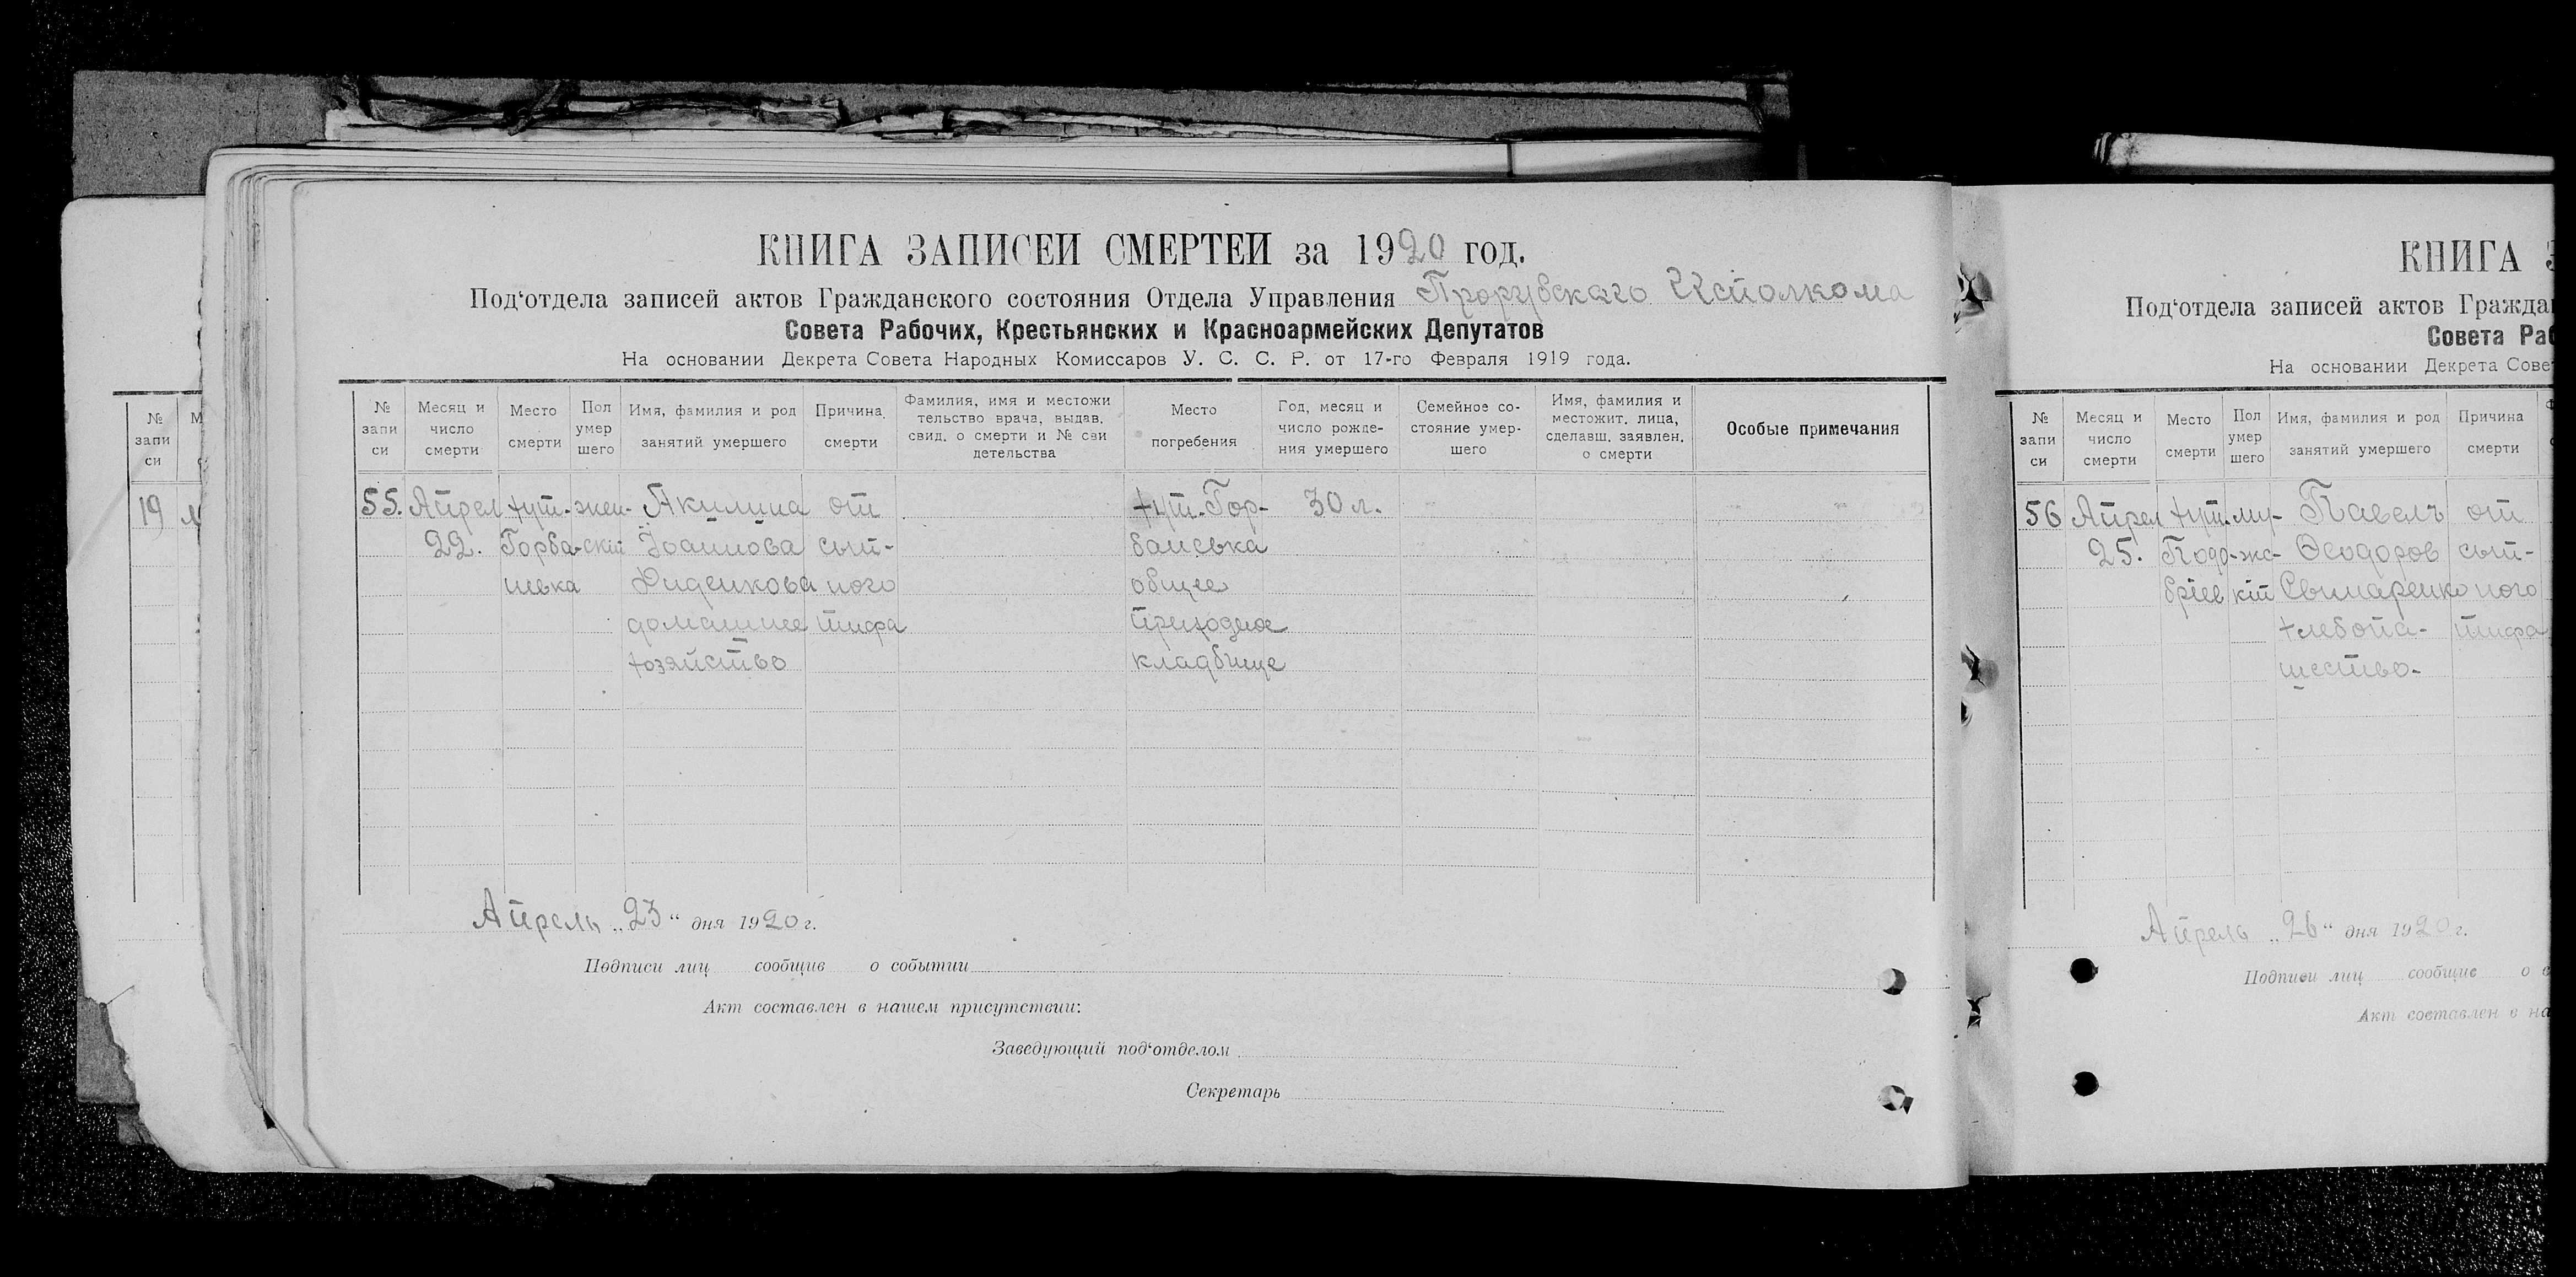 КНИГА ЗАПИСЕЙ СМЕРТЕЙ за 1920 год.
Под‘отдела записей актов Гражданского состояния Отдела Управления Прорубскаго Исполкома
Совета Рабочих, Крестьянских и Красноармейских Депутатов
На основании Декрета Совета Народных Комиссаров У. С. С. Р. от 17-го Февраля 1919 года.
№ запи си
Месяц и число смерти
Место смерти
Пол умер шего
Имя, фамилия и род занятий умершего
Причина смерти
Фамилия, имя и местожи тельство врача, выдав. свид. о смерти и № сви детельства
Место погребения
Год, месяц и число рожде- ния умершего
Семейное со- стояние умер- шего
Имя, фамилия и местожит. лица, сделавш. заявлен. о смерти
Особые примечания
55. Апрел хут. жен- Акилина от хут. Гор- 30 л.
22. Горба- скій Іоаннова сып- банська
невка Диденкова ного общее
домашнее тифа приходное
хозяйство кладбище
Апрель „23“ дня 1920 г.
Подписи лиц сообщив о событии
Акт составлен в нашем присутствии:
Заведующий под‘отделом
Секретарь
№ запи си
19
КНИГА
Под‘отдела записей актов Гражда
Совета Раб
На основании Декрета Сове
№ запи си
Месяц и число смерти
Место смерти
Пол умер шего
Имя, фамилия и род занятий умершего
Причина смерти
56 Апрел хут. му- Павелъ от
25. жс- Ѳеодоров сып-
кій Свинаренко ного
хлебопа- тифа
шество-
Апрель „26“ дня 1920 г.
Подписи лиц сообщив о
Акт составлен в на